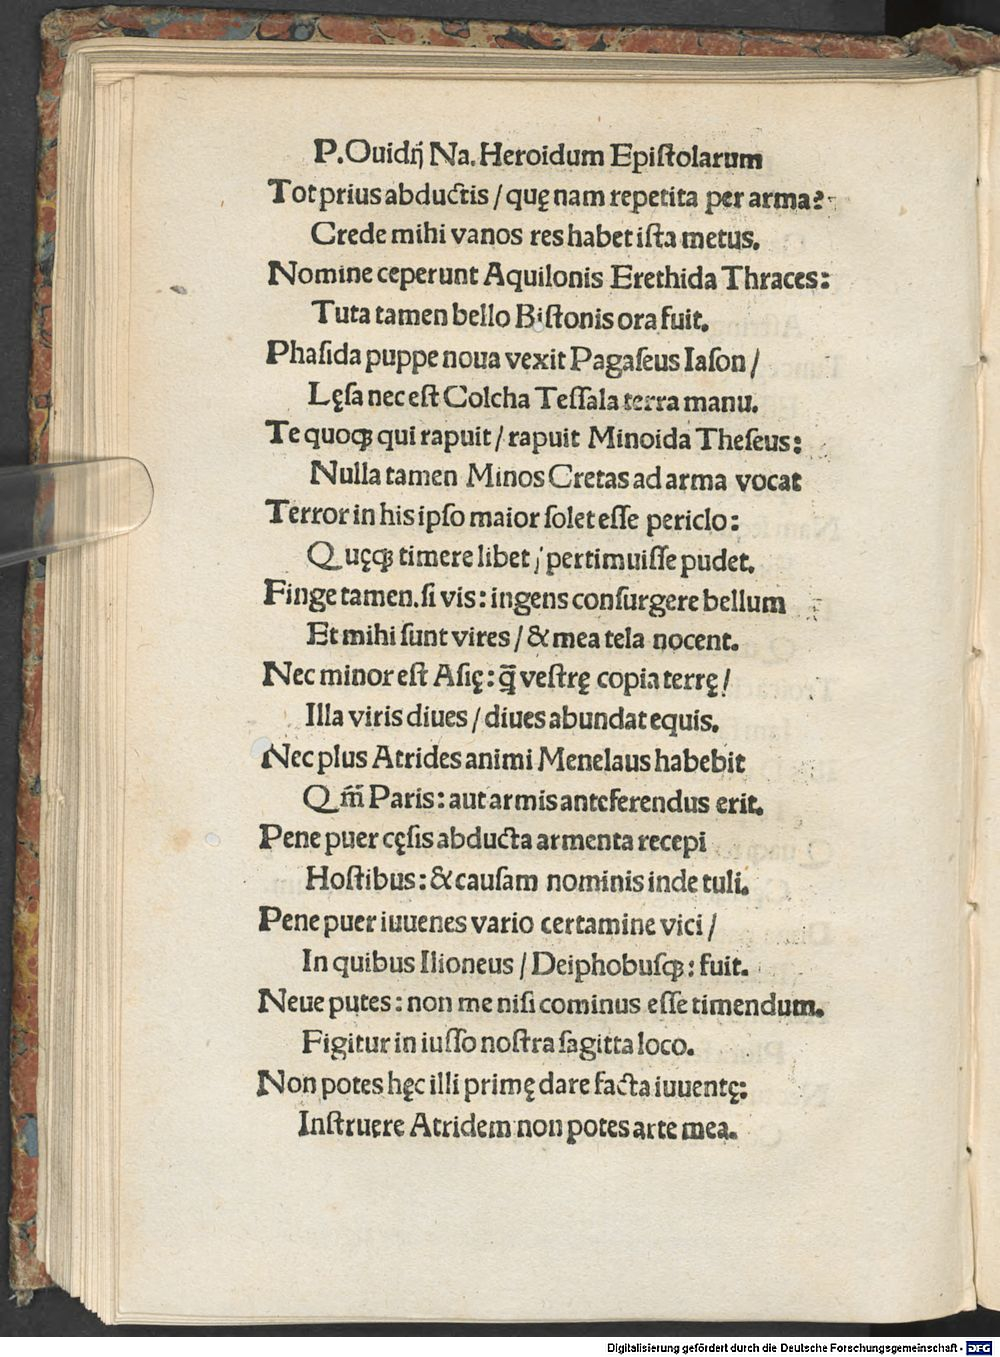 P.Ouidij Na. Heroidum Epiſtolarum
Tot prius abductis / quę nam repetita per arma?
Crede mihi vanos res habet iſta metus.
Nomine ceperunt Aquilonis Erethida Thraces:
Tuta tamen bello Biſtonis ora fuit.
Phaſida puppe noua vexit Pagaſeus Iaſon /
Lęſa nec eſt Colcha Teſſala terra manu.
Te quoqꝫ qui rapuit / rapuit Minoida Theſeus:
Nulla tamen Minos Cretas ad arma vocat
Terror in his ipſo maior ſolet eſſe periclo:
Quęqꝫ timere libet / pertimuiſſe pudet.
Finge tamen. ſi vis: ingens conſurgere bellum
Et mihi ſunt vires / & mea tela nocent.
Nec minor eſt Aſię: q̄̄ veſtrę copia terrę /
Illa viris diues / diues abundat equis.
Nec plus Atrides animi Menelaus habebit
Qm̄ Paris: aut armis anteferendus erit.
Pene puer cęſis abducta armenta recepi
Hoſtibus: & cauſam nominis inde tuli.
Pene puer iuuenes vario certamine vici /
In quibus Ilioneus / Deiphobuſqꝫ: fuit.
Neue putes: non me niſi cominus eſſe timendum.
Figitur in iuſſo noſtra ſagitta loco.
Non potes hęc illi primę dare facta iuuentę:
Inſtruere Atridem non potes arte mea.
Digitalisierung gefördert durch die Deutsche Forschungsgemeinschaft - DFG